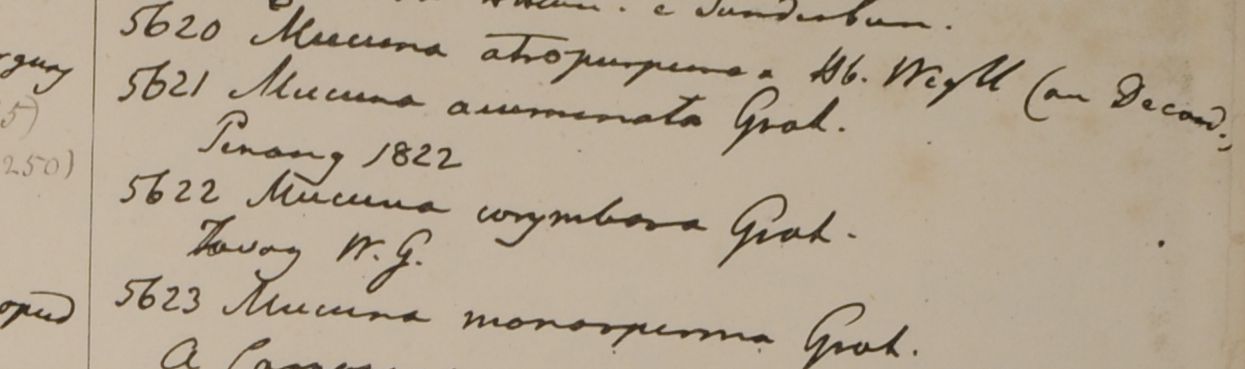 5620 Mucuna atropurpurea Hb. Wight (an Decand.,
5621 Mucuna acuminata Grah.
Penang 1822
5622 Mucuna corymbosa Grah.
Tavoy W. G.
5623 Mucuna monosperma Grah.